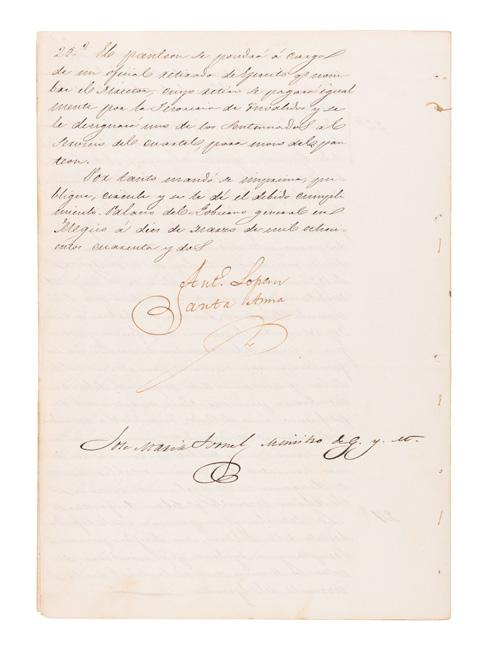 29.º El panteon se pondrá á cargo
de un oficial retirado del ejercito q. nom-
brar el Director, cuyo retiro se pagará igual
mente por la Tesoreria de Invalidos y se
le designará uno de los sentenciados al
servicio del cuartel para mozo del pan
teon.
Por tanto mando se imprima, pu-
blique, circule y se le dé el debido cumpli-
miento. Palacio del Gobierno general en
Megico á dies de Marzo de mil ochoci-
entos cuarenta y dos
Ant.º Lopez
Santa Anna
José Maria Tornel Ministro de g. y M.